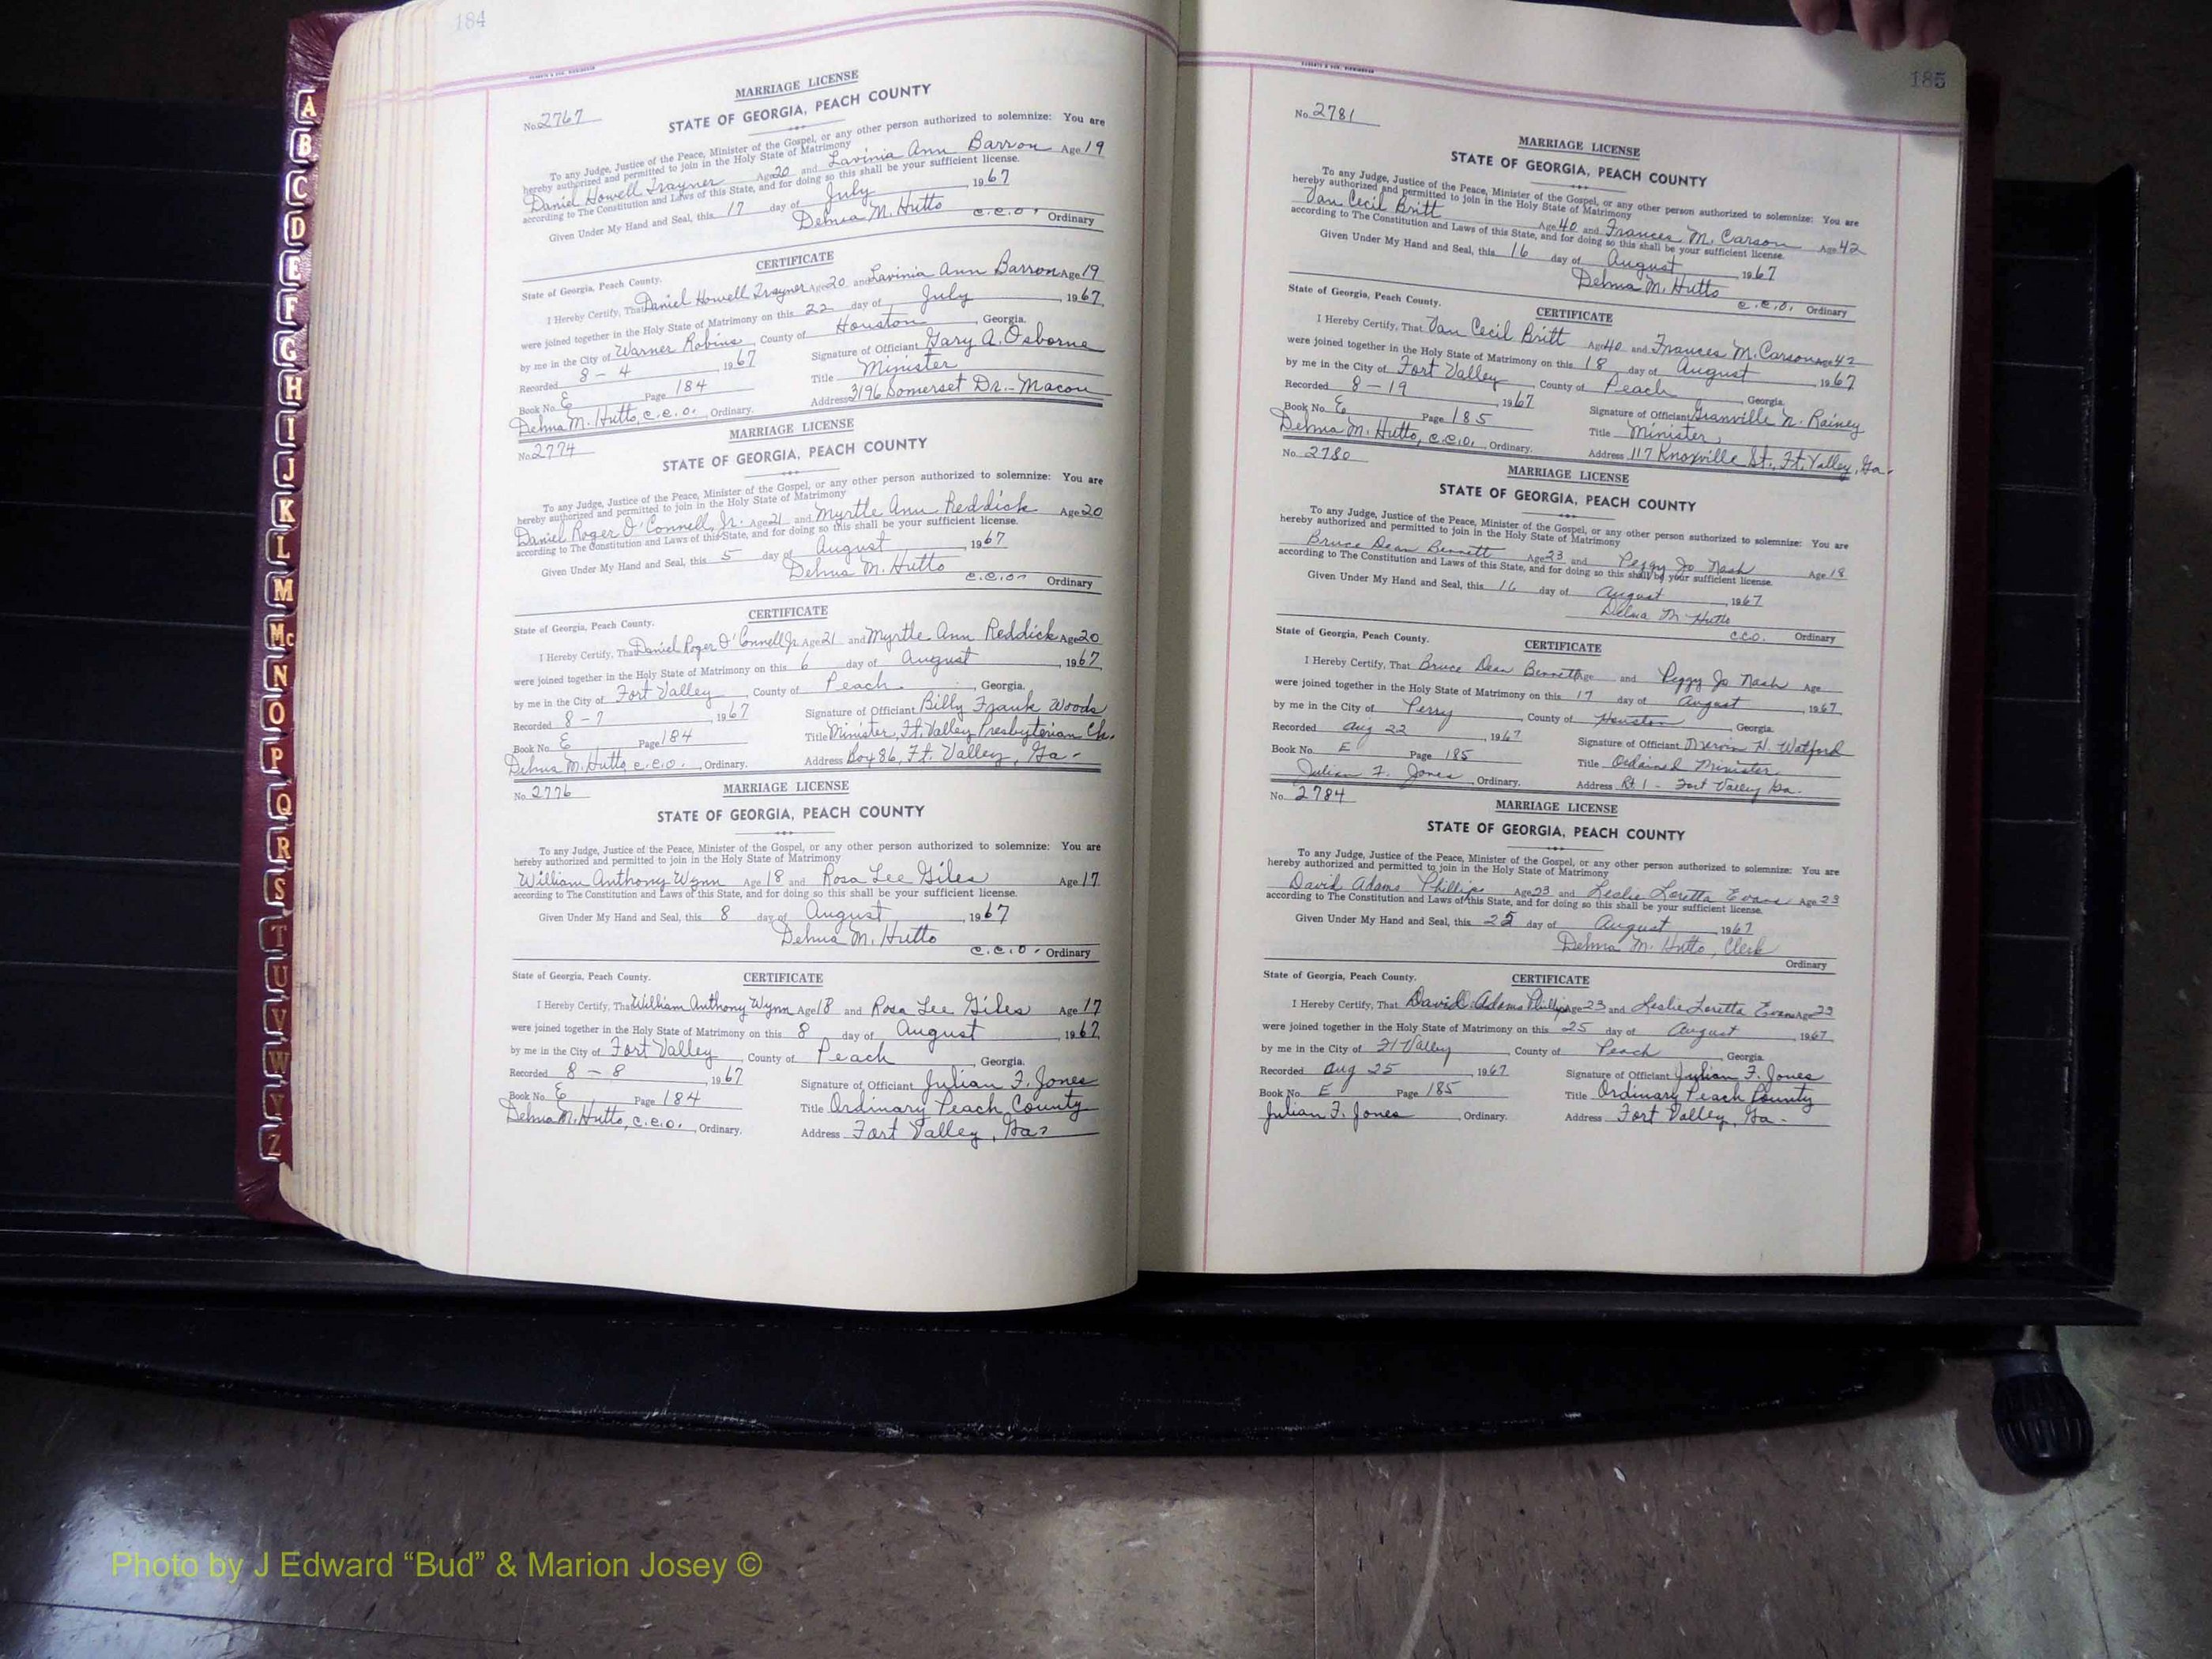 A
B
C
D
E
F
G
H
I
J
K
L
M
Mc
N
O
P
Q
R
S
T
U
V
W
Y
Z
184
MARRIAGE LICENSE
No. 2767
STATE OF GEORGIA, PEACH COUNTY
To any Judge, Justice of the Peace, Minister of the Gospel, or any other person authorized to solemnize: You are
hereby authorized and permitted to join in the Holy State of Matrimony
Daniel Howell Trayner Age 20 and Lavinia Ann Barron Age 19
according to The Constitution and Laws of this State, and for doing so this shall be your sufficient license.
Given Under My Hand and Seal, this 17 day of July, 1967
Delma M. Hutto
C.C.O. Ordinary
CERTIFICATE
State of Georgia, Peach County.
I Hereby Certify, That Daniel Howell Trayner Age 20 and Lavinia Ann Barron Age 19
were joined together in the Holy State of Matrimony on this 22 day of July, 1967
by me in the City of Warner Robins, County of Houston, Georgia.
Recorded 8-4 1967 Signature of Officiant Gary A. Osborne
Title Minister
Book No. E Page 184 Address 3196 Somerset Dr.- Macon
Delma M. Hutto, C.C.O., Ordinary.
MARRIAGE LICENSE
No. 2774
STATE OF GEORGIA, PEACH COUNTY
To any Judge, Justice of the Peace, Minister of the Gospel, or any other person authorized to solemnize: You are
hereby authorized and permitted to join in the Holy State of Matrimony
Daniel Roger O'Connell, Jr. Age 21 and Myrtle Ann Reddick Age 20
according to The Constitution and Laws of this State, and for doing so this shall be your sufficient license.
Given Under My Hand and Seal, this 5 day of August, 1967
Delma M. Hutto
C.C.O. Ordinary
CERTIFICATE
State of Georgia, Peach County.
I Hereby Certify, That Daniel Roger O'Connell Jr. Age 21 and Myrtle Ann Reddick Age 20
were joined together in the Holy State of Matrimony on this 6 day of August, 1967
by me in the City of Fort Valley, County of Peach, Georgia.
Recorded 8-7, 1967 Signature of Officiant Billy Frank Woods
Book No. E Page 184 Title Minister, Ft. Valley Presbyterian Ch.
Delma M. Hutto C.C.O., Ordinary. Address Box 86, Ft. Valley, Ga-
MARRIAGE LICENSE
No. 2776
STATE OF GEORGIA, PEACH COUNTY
To any Judge, Justice of the Peace, Minister of the Gospel, or any other person authorized to solemnize: You are
hereby authorized and permitted to join in the Holy State of Matrimony
William Anthony Wynn Age 18 and Rosa Lee Giles Age 17
according to The Constitution and Laws of this State, and for doing so this shall be your sufficient license.
Given Under My Hand and Seal, this 8 day of August, 1967
Delma M. Hutto
C.C.O. Ordinary
State of Georgia, Peach County. CERTIFICATE
I Hereby Certify, That William Anthony Wynn Age 18 and Rosa Lee Giles Age 17
were joined together in the Holy State of Matrimony on this 8 day of August, 1967
by me in the City of Fort Valley, County of Peach, Georgia.
Recorded 8-8, 1967 Signature of Officiant Julian F. Jones
Book No. E Page 184 Title Ordinary Peach County
Delma M. Hutto, C.C.O., Ordinary. Address Fort Valley, Ga.
185
No. 2781
MARRIAGE LICENSE
STATE OF GEORGIA, PEACH COUNTY
To any Judge, Justice of the Peace, Minister of the Gospel, or any other person authorized to solemnize: You are
hereby authorized and permitted to join in the Holy State of Matrimony
Van Cecil Britt Age 40 and Frances M. Carson Age 42
according to The Constitution and Laws of this State, and for doing so this shall be your sufficient license.
Given Under My Hand and Seal, this 16 day of August, 1967
Delma M. Hutto
C.C.O. Ordinary
State of Georgia, Peach County. CERTIFICATE
I Hereby Certify, That Van Cecil Britt Age 40 and Frances M. Carson Age 42
were joined together in the Holy State of Matrimony on this 18 day of August, 1967
by me in the City of Fort Valley, County of Peach, Georgia.
Recorded 8-19, 1967 Signature of Officiant Granville N. Rainey
Book No. E Page 185 Title Minister
Delma M. Hutto, C.C.O. Ordinary. Address 117 Knoxville St., Ft. Valley, Ga.
No. 2780
MARRIAGE LICENSE
STATE OF GEORGIA, PEACH COUNTY
To any Judge, Justice of the Peace, Minister of the Gospel, or any other person authorized to solemnize: You are
hereby authorized and permitted to join in the Holy State of Matrimony
Bruce Dean Bennett Age 23 and Peggy Jo Nash Age 18
according to The Constitution and Laws of this State, and for doing so this shall be your sufficient license.
Given Under My Hand and Seal, this 16 day of August, 1967
Delma M. Hutto
CCO. Ordinary
State of Georgia, Peach County. CERTIFICATE
I Hereby Certify, That Bruce Dean Bennett Age and Peggy Jo Nash Age
were joined together in the Holy State of Matrimony on this 17 day of August, 1967
by me in the City of Perry, County of Houston, Georgia.
Recorded Aug 22, 1967 Signature of Officiant H. Watford
Book No. E Page 185 Title Ordained Minister
Julian F. Jones, Ordinary. Address Rt. 1 - Fort Valley Ga.
No. 2784
MARRIAGE LICENSE
STATE OF GEORGIA, PEACH COUNTY
To any Judge, Justice of the Peace, Minister of the Gospel, or any other person authorized to solemnize: You are
hereby authorized and permitted to join in the Holy State of Matrimony
David Adams Phillips Age 23 and Leslie Loretta Evans Age 23
according to The Constitution and Laws of this State, and for doing so this shall be your sufficient license.
Given Under My Hand and Seal, this 25 day of August, 1967
Delma M. Hutto, Clerk
Ordinary
State of Georgia, Peach County. CERTIFICATE
I Hereby Certify, That David Adams Phillips Age 23 and Leslie Loretta Evans Age 23
were joined together in the Holy State of Matrimony on this 25 day of August, 1967
by me in the City of Ft Valley, County of Peach, Georgia
Recorded Aug 25, 1967 Signature of Officiant Julian F. Jones
Book No. E Page 185 Title Ordinary Peach County
Julian F. Jones, Ordinary. Address Fort Valley, Ga-
Photo by J Edward “Bud” & Marion Josey ©